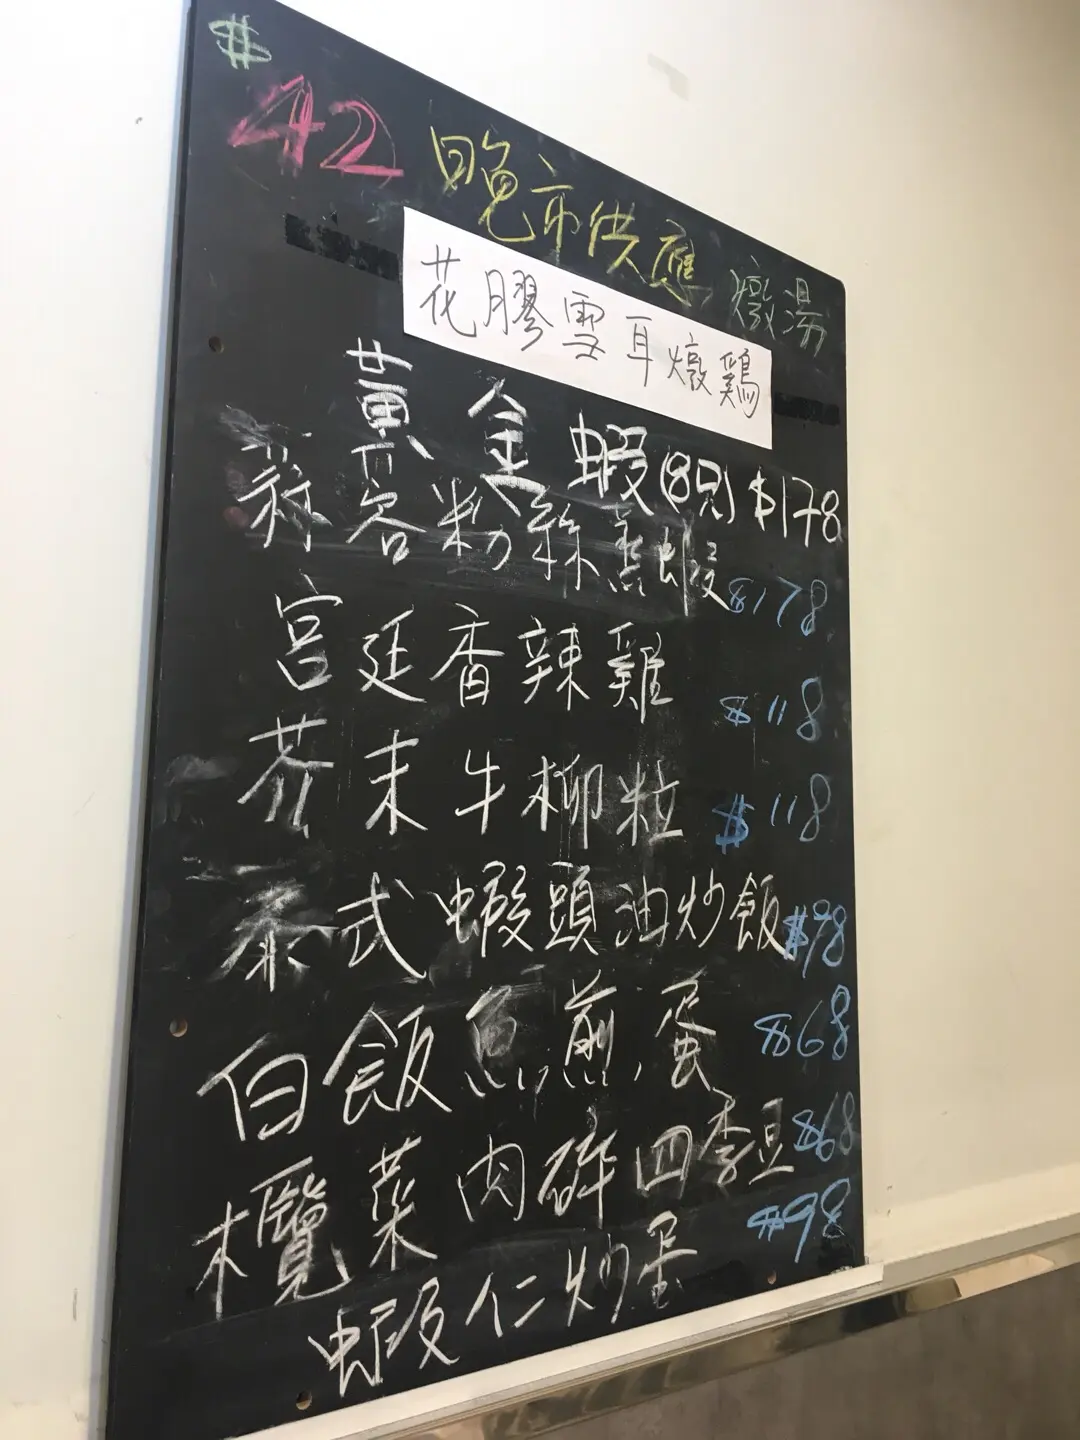 $
42 晚市供應 燉湯
花膠雪耳燉鷄
黃金蝦(8只) $178
蒜容粉絲蒸蝦 $178
宮廷香辣雞 $118
芥末牛柳粒 $118
泰式蝦頭油炒飯 $98
白飯魚煎蛋 $68
欖菜肉碎四季豆 $68
蝦仁炒蛋 $98